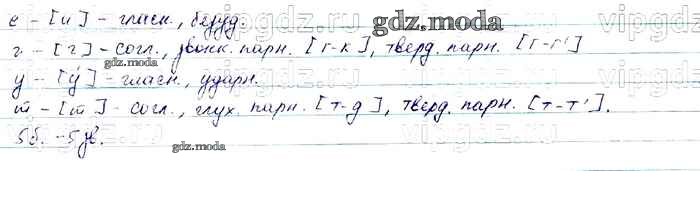 gdz.moda
е - [и] - гласн., безуд.
г - [г] - согл., звонк. парн. [г-к], тверд. парн. [г-г']
у - [у́] - гласн., ударн.
т - [т] - согл., глух. парн. [т-д], тверд. парн. [т-т'].
5б. - 5зв.
gdz.moda
gdz.moda